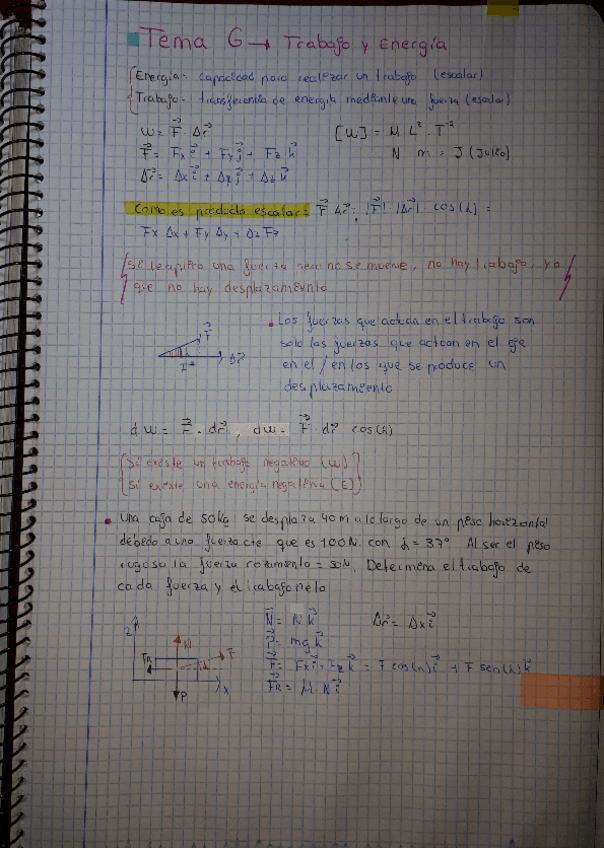 Tema 6 → Trabajo y Energía
Energía - capacidad para realizar un trabajo (escalar)
Trabajo - transferencia de energía mediante una fuerza (escalar)
W = F⃗ · Δr⃗ [W] = M L² · T⁻²
F⃗ = Fx i⃗ + Fy j⃗ + Fz k⃗ N m = J (Julio)
Δr⃗ = Δx i⃗ + Δy j⃗ + Δz k⃗
Como es producto escalar = F⃗ Δr⃗ = |F⃗| · |Δr⃗| · cos(α) =
Fx Δx + Fy Δy + Δz Fz
Si le aplico una fuerza pero no se mueve, no hay trabajo, ya
que no hay desplazamiento
• Las fuerzas que actúan en el trabajo son
solo las fuerzas que actúan en el eje
en el / en los que se produce un
desplazamiento
F⃗
Δr⃗
dW = F⃗ · dr⃗, dW = F⃗ · dr⃗ cos(α)
Si existe un trabajo negativo (W)
Si existe una energía negativa (E)
• Una caja de 50kg se desplaza 40m a lo largo de un piso horizontal
debido a una fuerza cte que es 100N con α = 37° Al ser el piso
rugoso la fuerza rozamiento = 50N. Determina el trabajo de
cada fuerza y el trabajo neto
N⃗ = N k⃗ Δr⃗ = Δx i⃗
P⃗ = mg k⃗
F⃗ = Fx i⃗ + Fz k⃗ = F cos(α) i⃗ + F sen(α) k⃗
F⃗R = μ · N i⃗
z
N
F
FR
x
P